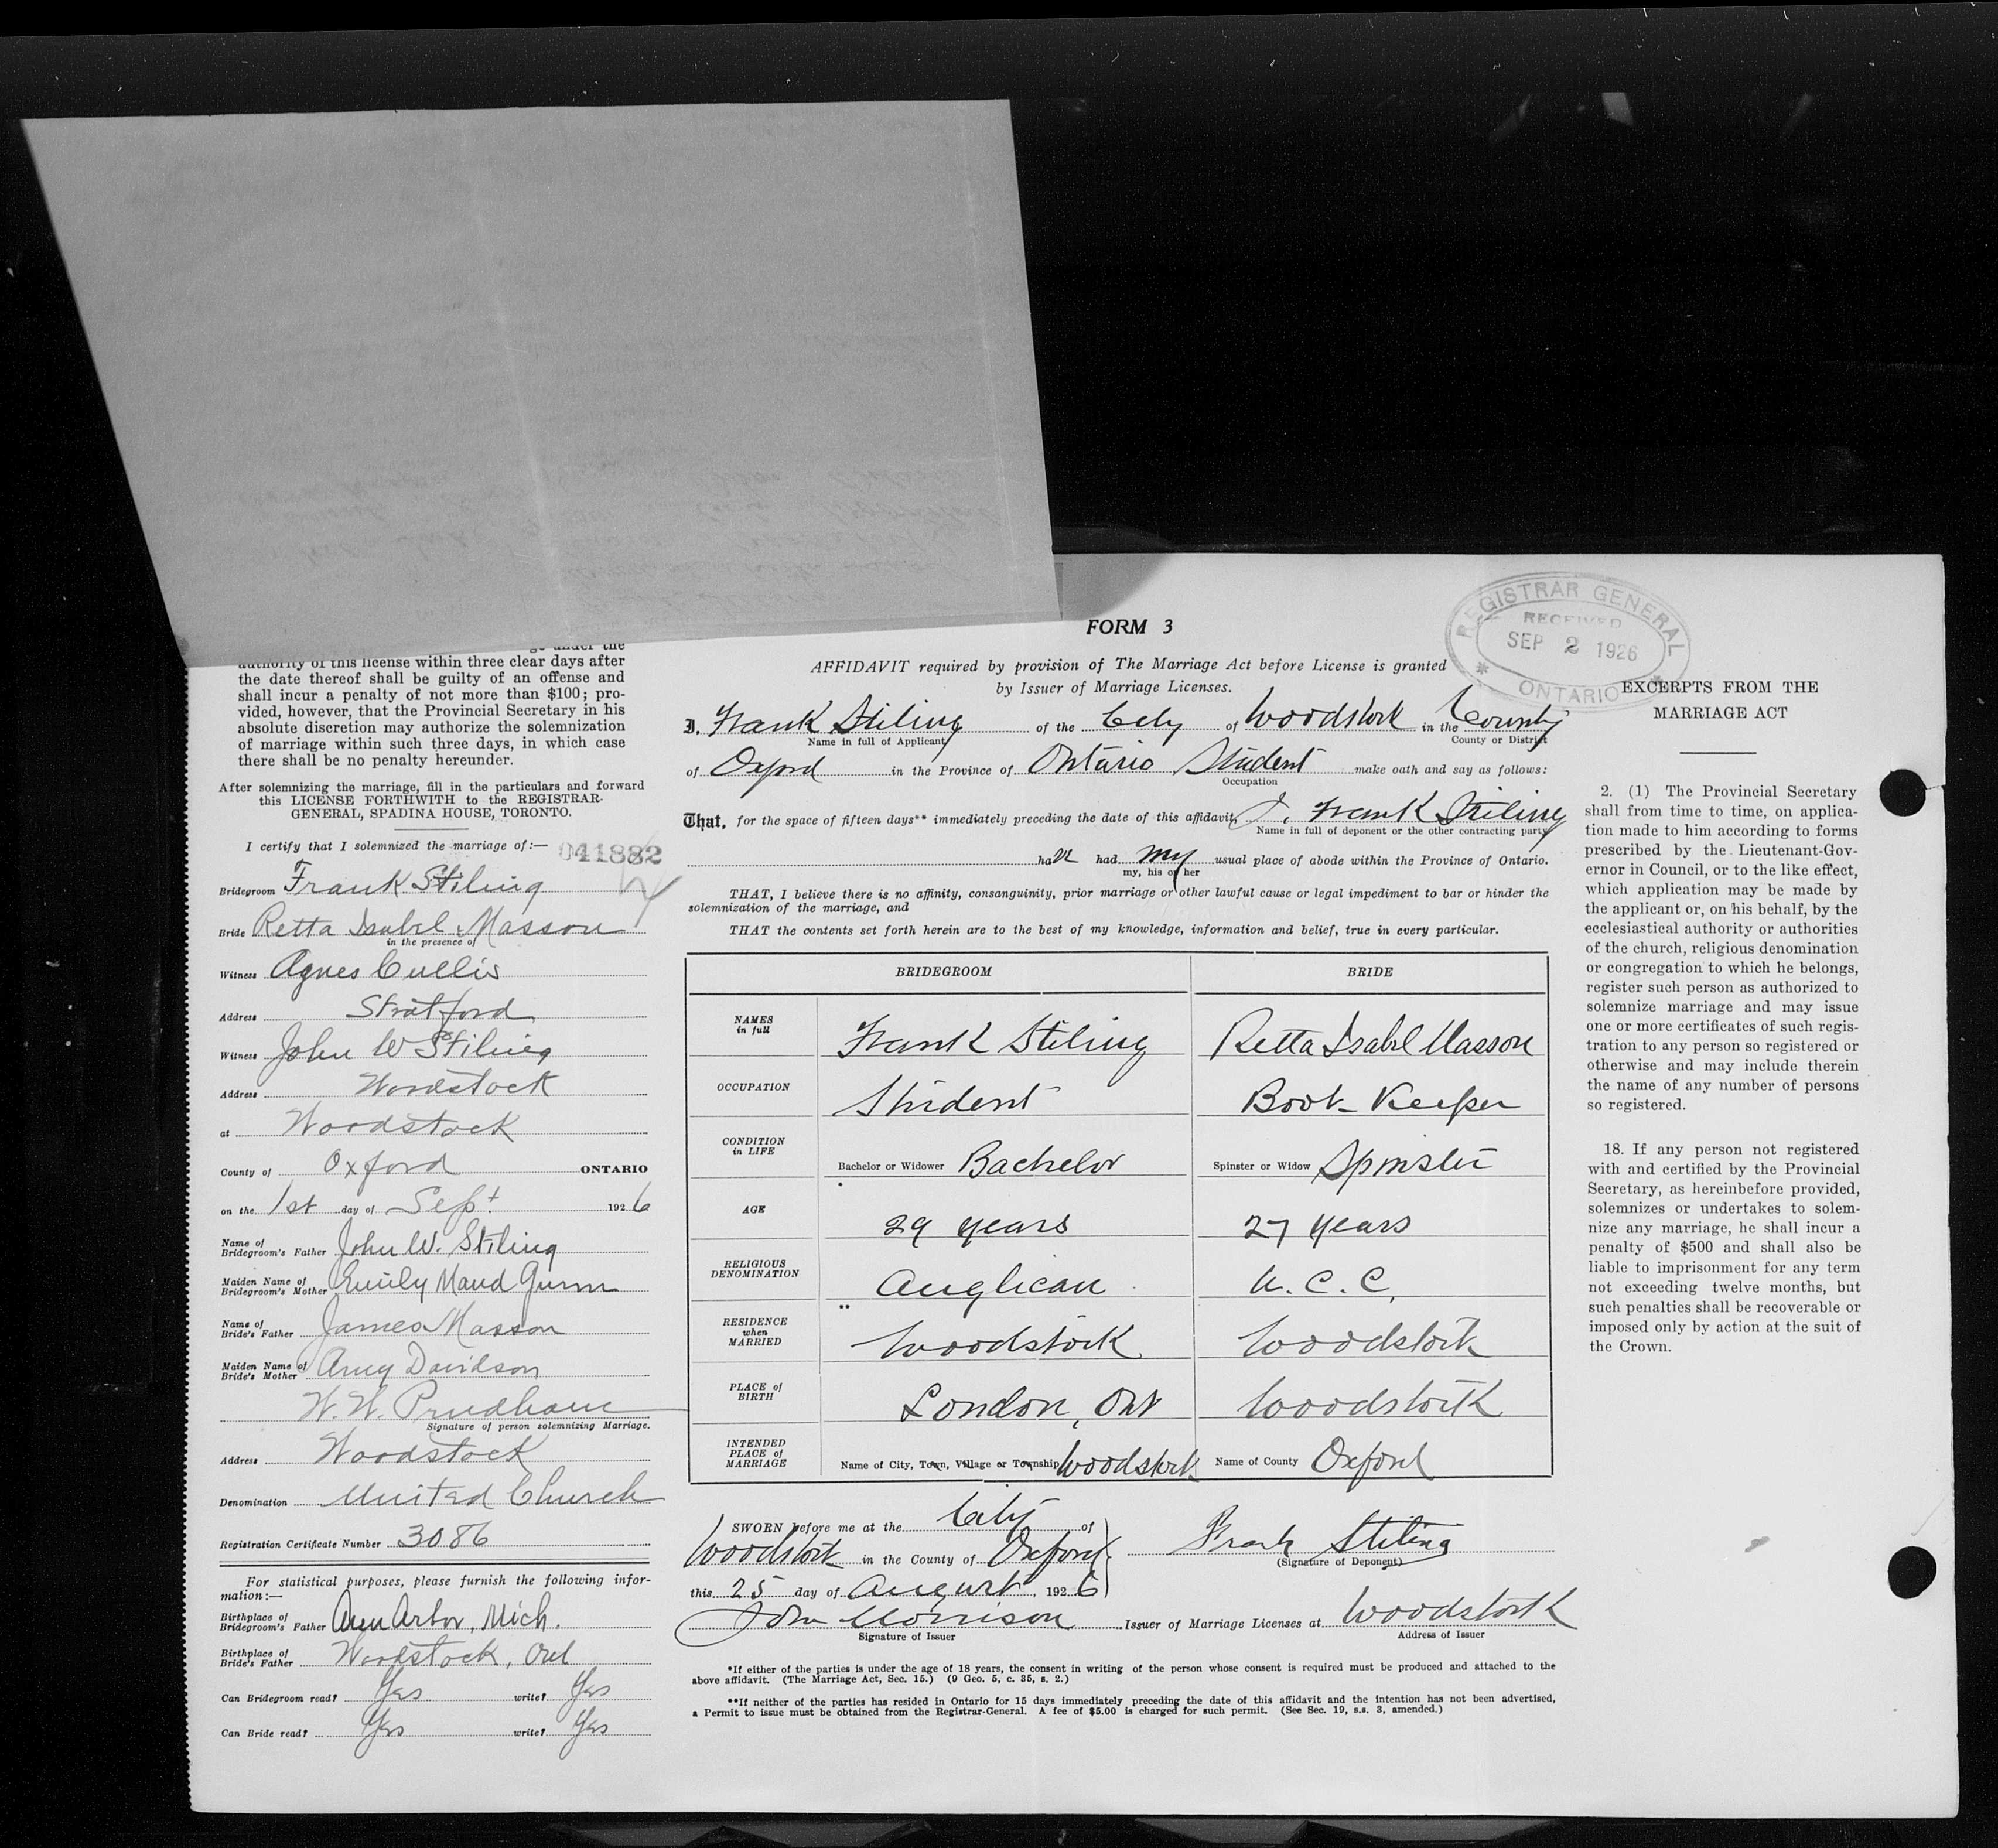 authority of this license within three clear days after
the date thereof shall be guilty of an offense and
shall incur a penalty of not more than $100; pro-
vided, however, that the Provincial Secretary in his
absolute discretion may authorize the solemnization
of marriage within such three days, in which case
there shall be no penalty hereunder.
After solemnizing the marriage, fill in the particulars and forward
this LICENSE FORTHWITH to the REGISTRAR-
GENERAL, SPADINA HOUSE, TORONTO.
I certify that I solemnized the marriage of:— 041882
Bridegroom Frank Stiling
Bride Retta Isabel Masson
in the presence of
Witness Agnes Cullis
Address Stratford
Witness John W Stiling
Address Woodstock
at Woodstock
County of Oxford ONTARIO
on the 1st day of Sept 1926
Name of
Bridegroom's Father John W. Stiling
Maiden Name of
Bridegroom's Mother Emily Maud Gunn
Name of
Bride's Father James Masson
Maiden Name of
Bride's Mother Amy Davidson
W. W. Prudham
Signature of person solemnizing Marriage.
Address Woodstock
Denomination United Church
Registration Certificate Number 3086
For statistical purposes, please furnish the following infor-
mation:—
Birthplace of
Bridegroom's Father Ann Arbor, Mich.
Birthplace of
Bride's Father Woodstock, Ont
Can Bridegroom read? Yes write? Yes
Can Bride read? Yes write? Yes
FORM 3
REGISTRAR GENERAL
RECEIVED
SEP 2 1926
ONTARIO
AFFIDAVIT required by provision of The Marriage Act before License is granted
by Issuer of Marriage Licenses.
I, Frank Stiling of the City of Woodstock in the County
Name in full of Applicant County or District
of Oxford in the Province of Ontario Student make oath and say as follows:
Occupation
That, for the space of fifteen days** immediately preceding the date of this affidavit, I, Frank Stiling
Name in full of deponent or the other contracting party
have had my usual place of abode within the Province of Ontario.
my, his or her
THAT, I believe there is no affinity, consanguinity, prior marriage or other lawful cause or legal impediment to bar or hinder the
solemnization of the marriage, and
THAT the contents set forth herein are to the best of my knowledge, information and belief, true in every particular.
BRIDEGROOM BRIDE
NAMES
in full Frank Stiling Retta Isabel Masson
OCCUPATION Student Book-Keeper
CONDITION
in LIFE Bachelor or Widower Bachelor Spinster or Widow Spinster
AGE 29 years 27 years
RELIGIOUS
DENOMINATION Anglican U. C. C.
RESIDENCE
when
MARRIED Woodstock Woodstock
PLACE of
BIRTH London, Ont Woodstock
INTENDED
PLACE of
MARRIAGE Name of City, Town, Village or Township Woodstock Name of County Oxford
SWORN before me at the City of
Woodstock in the County of Oxford Frank Stiling
(Signature of Deponent)
this 25 day of August, 1926
John Morrison Issuer of Marriage Licenses at Woodstock
Signature of Issuer Address of Issuer
*If either of the parties is under the age of 18 years, the consent in writing of the person whose consent is required must be produced and attached to the
above affidavit. (The Marriage Act, Sec. 15.) (9 Geo. 5, c. 35, s. 2.)
**If neither of the parties has resided in Ontario for 15 days immediately preceding the date of this affidavit and the intention has not been advertised,
a Permit to issue must be obtained from the Registrar-General. A fee of $5.00 is charged for such permit. (See Sec. 19, s.s. 3, amended.)
EXCERPTS FROM THE
MARRIAGE ACT
2. (1) The Provincial Secretary
shall from time to time, on applica-
tion made to him according to forms
prescribed by the Lieutenant-Gov-
ernor in Council, or to the like effect,
which application may be made by
the applicant or, on his behalf, by the
ecclesiastical authority or authorities
of the church, religious denomination
or congregation to which he belongs,
register such person as authorized to
solemnize marriage and may issue
one or more certificates of such regis-
tration to any person so registered or
otherwise and may include therein
the name of any number of persons
so registered.
18. If any person not registered
with and certified by the Provincial
Secretary, as hereinbefore provided,
solemnizes or undertakes to solem-
nize any marriage, he shall incur a
penalty of $500 and shall also be
liable to imprisonment for any term
not exceeding twelve months, but
such penalties shall be recoverable or
imposed only by action at the suit of
the Crown.